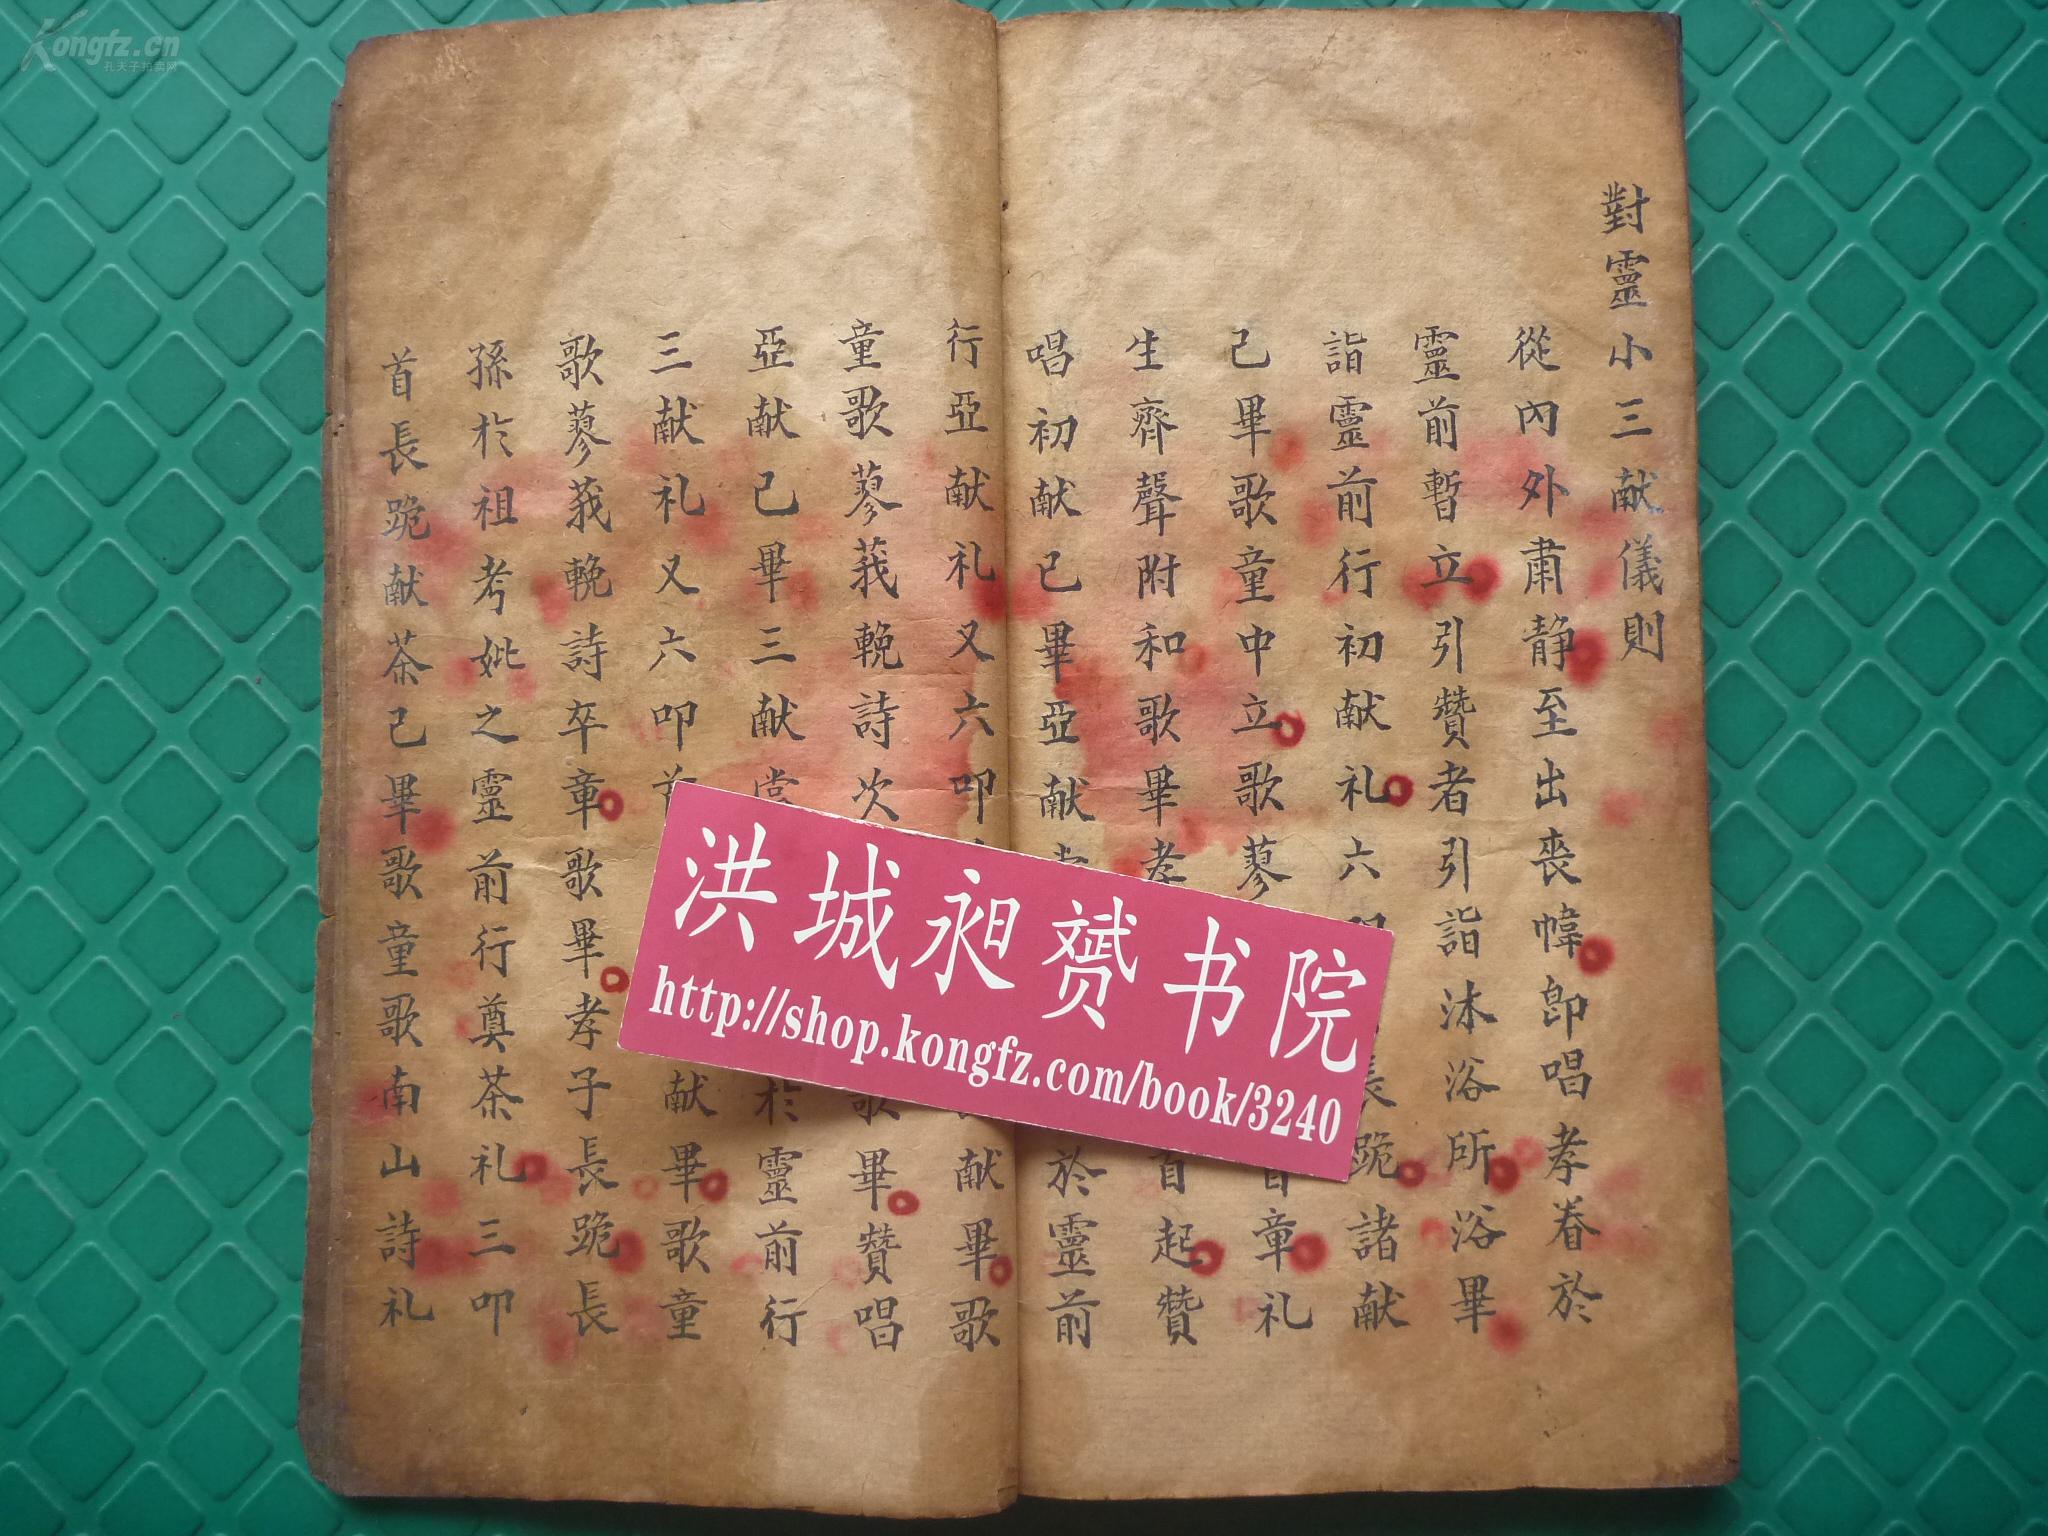 對靈小三献儀則
從內外肅静至出丧幃即唱孝眷於
靈前暫立引贊者引詣沐浴所浴畢
詣靈前行初献礼六長跪諸献
己畢歌童中立歌蓼首章礼
生齊聲附和歌畢孝首起贊
唱初献已畢亞献於靈前
行亞献礼又六叩献畢歌
童歌蓼莪輓詩次歌畢贊唱
亞献己畢三献當於靈前行
三献礼又六叩首献畢歌童
歌蓼莪輓詩卒章歌畢孝子長跪長
孫於祖考妣之靈前行奠茶礼三叩
首長跪献茶己畢歌童歌南山詩礼
洪城昶赟书院
http://shop.kongfz.com/book/3240
Kongfz.cn
孔夫子拍卖网